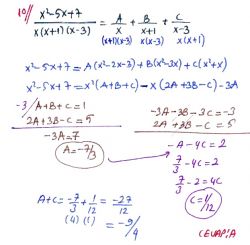 10//
x²-5x+7 / x(x+1)(x-3) = A/x + B/x+1 + C/x-3
(x+1)(x-3) x(x-3) x(x+1)
x²-5x+7 = A(x²-2x-3) + B(x²-3x) + C(x²+x)
x²-5x+7 = x²(A+B+C) - x(2A+3B-C) - 3A
-3/ A+B+C = 1
2A+3B-C = 5
-3A=7
A=-7/3
-3A-3B-3C=-3
2A+3B-C=5
-A-4C=2
7/3-4C=2
7/3-2=4C
C=1/12
A+C=-7/3+1/12=-27/12
(4) (1)
=-9/4
CEVAP:A